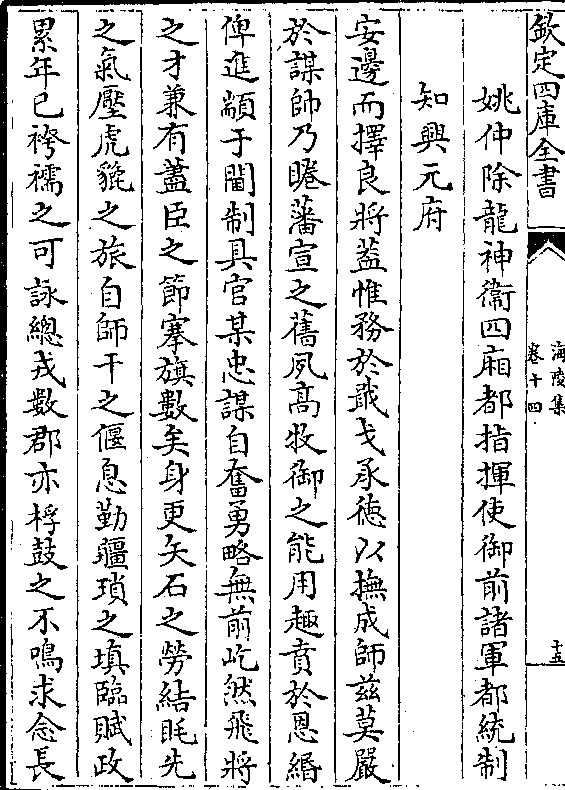 欽定四庫全書
海陵集
卷十四
十五
姚仲除龍神衞四廂都指揮使御前諸軍都統制
知興元府
安邊而擇良將蓋惟務於戢戈承徳以撫成師兹莫嚴
於謀帥乃睠藩宣之舊夙髙牧御之能用趣賁於恩緡
俾進顓于閫制具官某忠謀自奮勇略無前屹然飛將
之才兼有藎臣之節搴旗數矣身更矢石之勞結眊先
之氣壓虎貔之旅自師干之偃息勤疆瑣之填臨賦政
累年已袴襦之可詠總戎數郡亦桴鼓之不鳴求念長